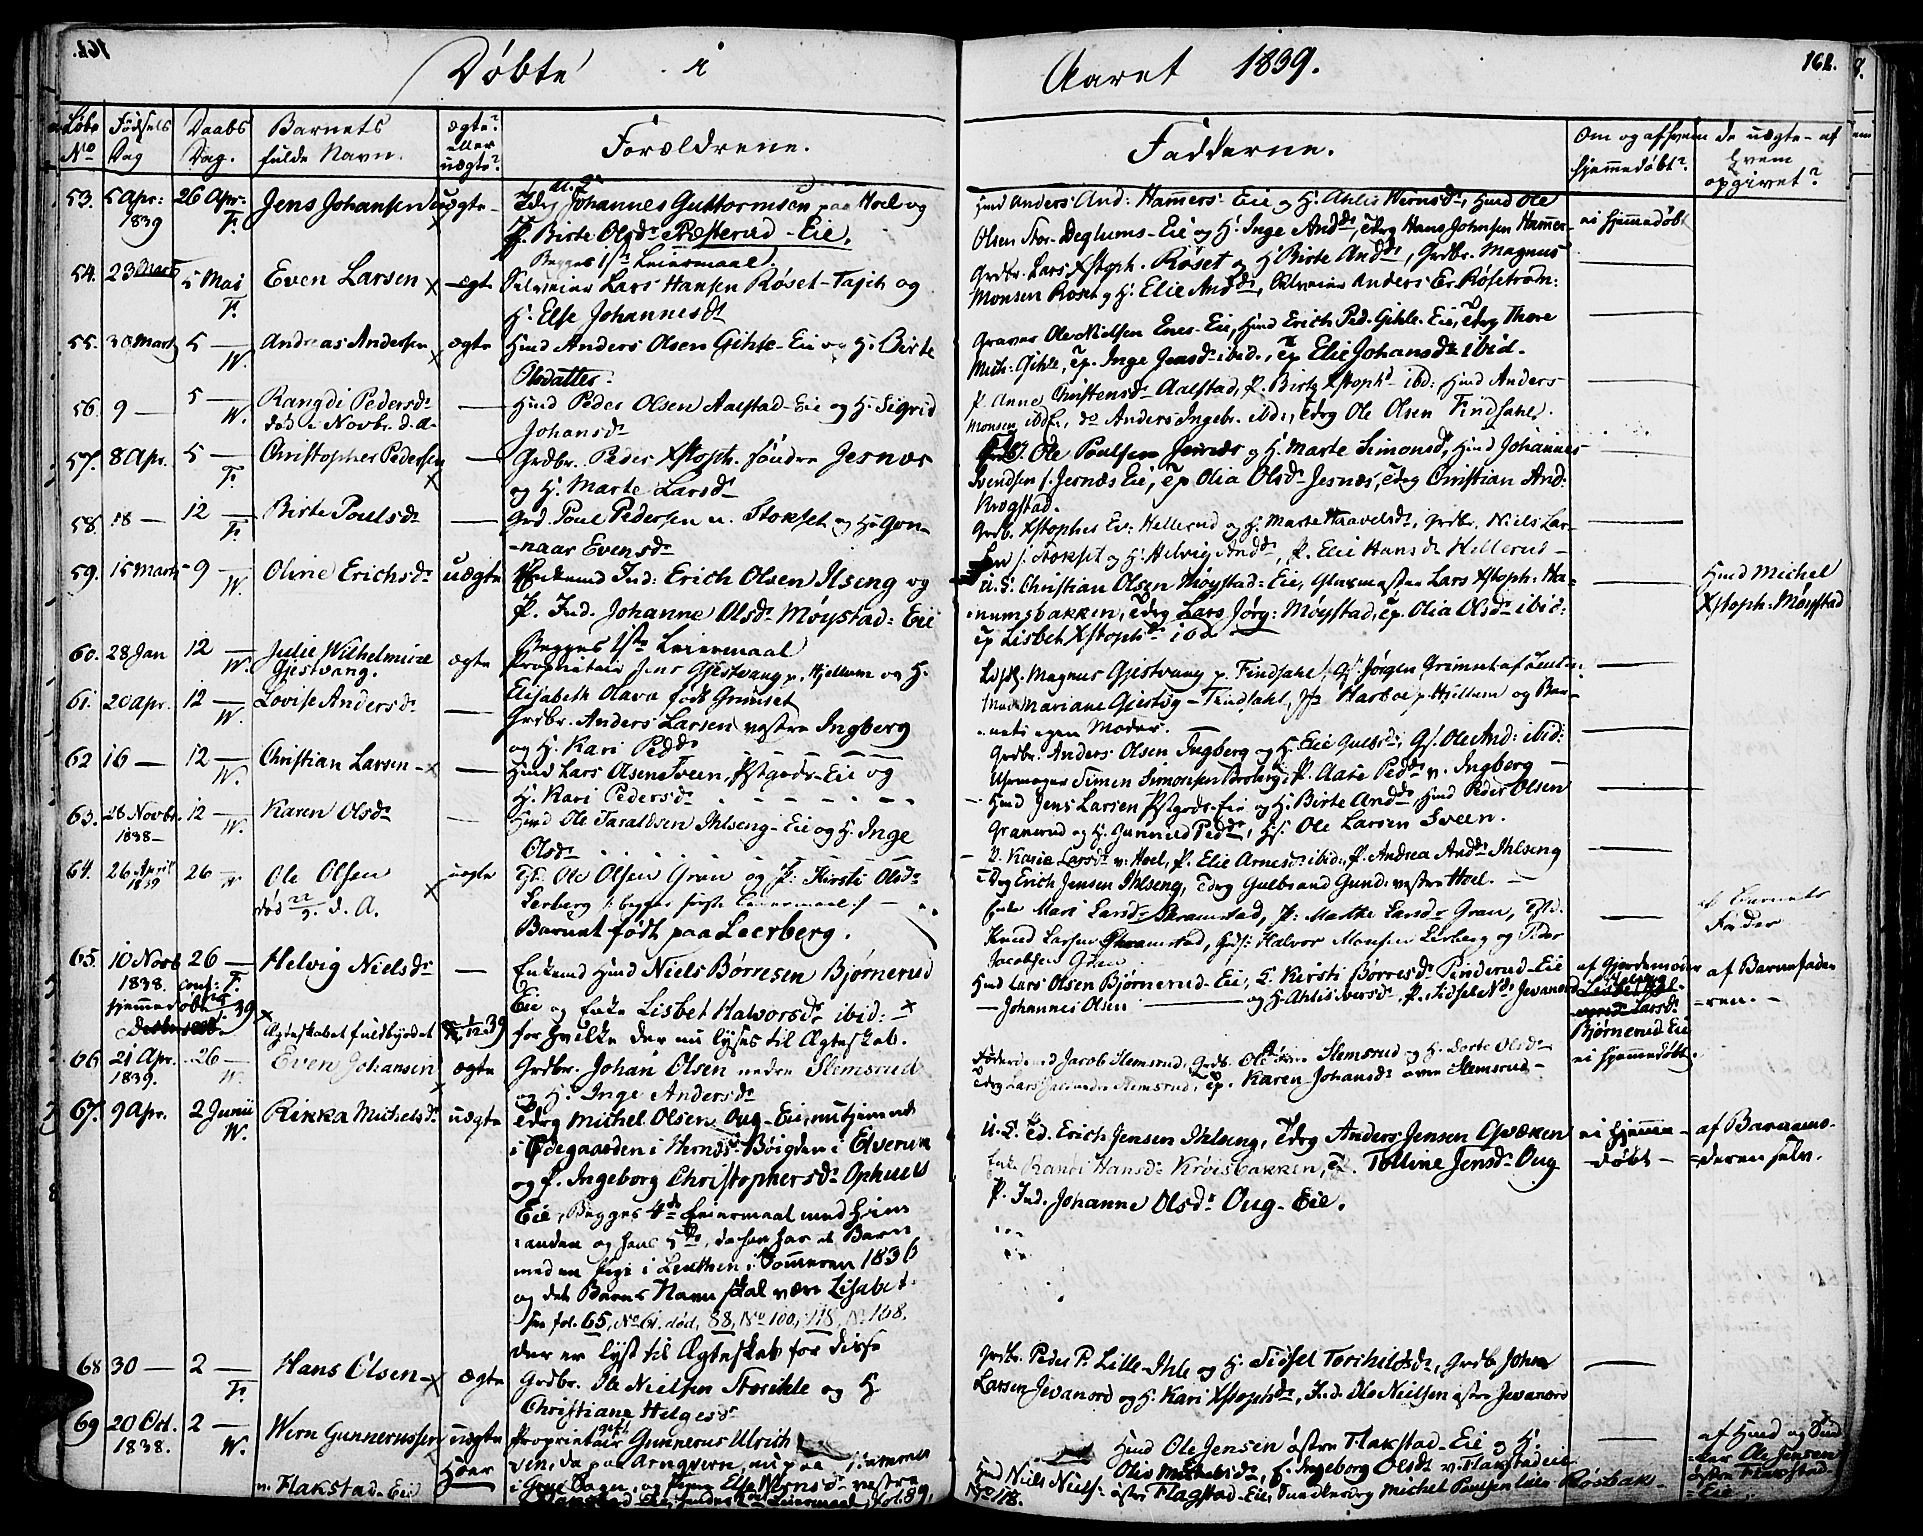 Døbte i Aaret 1839. 162.
Løbe No
Fødsels Dag
Daabs Dag.
Barnets fulde Navn.
ægte? eller uægte?
Forældrene.
Fadderne.
Om og af hvem hjemmedøbt?
de uægte - af hvem opgivet?
53. 5 Apr: 1839 26 Apr: F. Jens Johansen uægte
Johannes Guttormsen paa Hoel og
P. Birte Olsdr Præsterud - Eie.
Begges 1ste Leiermaal.
Hmd Anders And: Hammers Eie og H. Ahlis Wernsdr, Hmd Ole
Olsen Stor-Deglums-Eie og H. Inge Anddr, Hans Johnsen Hammer-
ei hjemmedøbt
54. 23 Marts 5 Mai F. Even Larsen ægte
Selveier Lars Hansen Røset-Tajet og
H. Else Johannesdr
Grdbr. Lars Xstoph. Røset og H Birte Anddr, Grdbr. Magnus
Monsen Røset og H. Elie Anddr, Selveier Anders Er. Røsetrom:
55. 30 Marts 5 — W. Andreas Andersen ægte
Hmd Anders Olsen Gihle-Eie og H. Birte
Olsdatter.
Graver Ole Nielsen Enes-Eie, Hmd Erich Ped. Gihle-Eie, Thore
Mich: Gihle, Inge Jensdr ibid., Elie Johansdr ibid.
56. 9 — 5 — W. Rangdi Pedersdr —
død i Novbr. d. A.
Hmd Peder Olsen Aalstad-Eie og H. Sigrid
Johansdr
P. Anne Christensdr Aalstad, P. Birte Xstophd ibd: Hmd Anders
Monsen ibd., do Anders Ingebr. ibd., Ole Olsen Findsahl.
57. 8 Apr. 5 — F. Christopher Pedersen —
Grdbr. Peder Xstoph. søndre Jesnæs
og H. Marte Larsdr
Ole Poulsen Jesnæs og H. Marte Simonsd, Hmd Johannes
Svendsen s. Jesnæs Eie, Olia Olsdr Jesnæs, Christian And:
Krogstad.
58. 18 — 12 — F. Birte Poulsdr —
Grd. Poul Pedersen n. Stokset og H. Gon-
-naar Evensdr
Grdb. Xstopher Ev: Hellerud og H. Marte Haavelsdr, Grdbr. Niels Lar-
sen s. Stokset og H. Helvig Anddr, P. Elie Hansdr Hellerud -
59. 15 Marts 9 — W. Oline Erichsdr uægte
Enkemd Ind: Erich Olsen Ilseng og
P. Ind. Johanne Olsdr Møystad: Eie
Begges 1ste Leiermaal
U.S. Christian Olsen Møystad-Eie, Glasmester Lars Xstoph: Ha-
numsbakken, Lars Jørg: Møystad, Olia Olsdr ibid:
Lisbeth Xstophdr ibd
Hmd Michel
Xstoph. Møystad
60. 28 Jan 12 — W. Julie Wilhelmine
Gjestvang. ægte
Proprietair Jens Gjestvang p. Hjellum og H.
Elisabeth Olava født Grimset
Magnus Gjestvang p. Findsahl, Jørgen Grimset af Leuten
Mariane Gjestvg - Findsahl, Harboe p. Hjellum og Bar-
nets egen Moder.
61. 20 Apr. 12 — W. Lovise Andersdr —
Grdbr. Anders Larsen vestre Ingberg
og H. Kari Peddr
Grdbr. Anders Olsen Ingberg og H. Elie Gulbrdr, Gs. Ole And: ibid:
Uhrmager Simen Simonsen, P. Aase Peddr v. Ingberg -
62 16 — 12 — W. Christian Larsen —
Hmd Lars Olsen Sveen, Pstgods-Eie og
H. Kari Pedersdr
Hmd Jens Larsen Pstgods-Eie og H. Birte Anddr, Hmd Peder Olsen
Granerud og H. Gunnild Peddr, Hs. Ole Larsen Sveen.
63. 26 Novbr. 1838 — 12 — W. Karen Olsdr —
Hmd Ole Taraldsen Ihlseng-Eie og H. Inge
Olsdr
P. Karie Larsdr v. Hoel, P. Elie Arnesdr ibid:, P. Andrea Anddr Ihlseng
Erich Jensen Ihlseng, Gulbrand Gund: vestre Hoel. -
64. 26 April 1839 26 — Ole Olsen uægte
død 22/9. d. A.
Ole Olsen Gran og P: Kirsti Olsdr
Lerberg /: begges første Leiermaal :/
Barnet født paa Leerberg.
Enke Mari Larsdr Skramstad, P: Marthe Larsdr Gran,
Knud Larsen Skramstad, Halvor Monsen Lerberg og Peder
Jacobsen Gran
af Barnets
Fader
65. 10 Novb 1838. 26 — F. Helvig Nielsdr —
Hjemmedøbt
Ægteskabet fuldbyrdet 39
Enkemd Hmd Niels Børresen Bjørnerud
Eie og Enke Lisbet Halvorsdr ibid:
for hvilke der nu lyses til Ægteskab.
Hmd Lars Olsen Bjørnerud-Eie, E. Kirsti Børresdr Pinderud-Eie
— Johannes Olsen — og H. Ahlis Iversdr, P. Sidsel Nsdr Jevanord
af Gjordemoder
Larsdr
Bjørnerud Eie
af Barnefade-
ren. -
66. 21 Apr. 1839. 26 — W. Even Johansen ægte
Grdbr. Johan Olsen nedre Slemsrud
og H. Inge Andersdr
Jacob Slemsrud, Grdb. Ole Slemsrud og H. Dorte Olsdr
Lars Slemsrud, Karen Johansdr øvre Slemsrud -
ei hjemmedøbt.
67. 9 Apr. 2 Junii W. Rikka Michelsdr uægte
Michel Olsen Oug-Eie, nu tjenende
i Ødegaarden i Hernæs-Bøigden i Elverum
og P. Ingeborg Christophersdr Ophuus
Eie, Begges 4de Leiermaal med hin-
anden og hans 5te, da han har et Barn
med en Pige i Leuthen i Sommeren 1836
og dets Barns Navn skal være Lisabet.
See fol. 65, No 61. død, 88, No 100, 118, No 168.
Der er lyst til Ægteskab for disse
U.S. Erich Jensen Ihlseng, Anders Jensen Opsæken
Enke Randi Hansdr Krøisbakken, Tolline Jensdr Oug
P. Ind. Johanne Olsdr Oug-Eie.
ei hjemme-
døbt -
af Barnemo-
deren selv.
68 30 — 2 — F. Hans Olsen — ægte
Grdbr. Ole Nielsen Storihle og H
Christiane Helgesdr
Grdbr. Peder P. Lille-Ihle og H. Sidsel Torchildsdr, Grdb. Johan
Larsen Jevanord og H. Kari Xstophdr, Ind. Ole Nielsen østre Jevanord
69 20 Oct. 1838. 2 — W. Wern Gunnerussen uægte
v. Flakstad-Eie
Proprietair Gunnerus Ulrich
da paa Arnqvern, nu paa
Else Wernsdr vestre
Leiermaal, fol. 89,
Hmd Ole Jensen østre Flakstad-Eie og H.
Olia Michelsdr, P. Ingeborg Olsdr v. Flakstadeie
Hmd Niels Niels: østre Flagstad-Eie, Michel Poulsen Røsbak-
No 118.
af Hmd og
Ole Jensen
østre Flakstad-
Eie